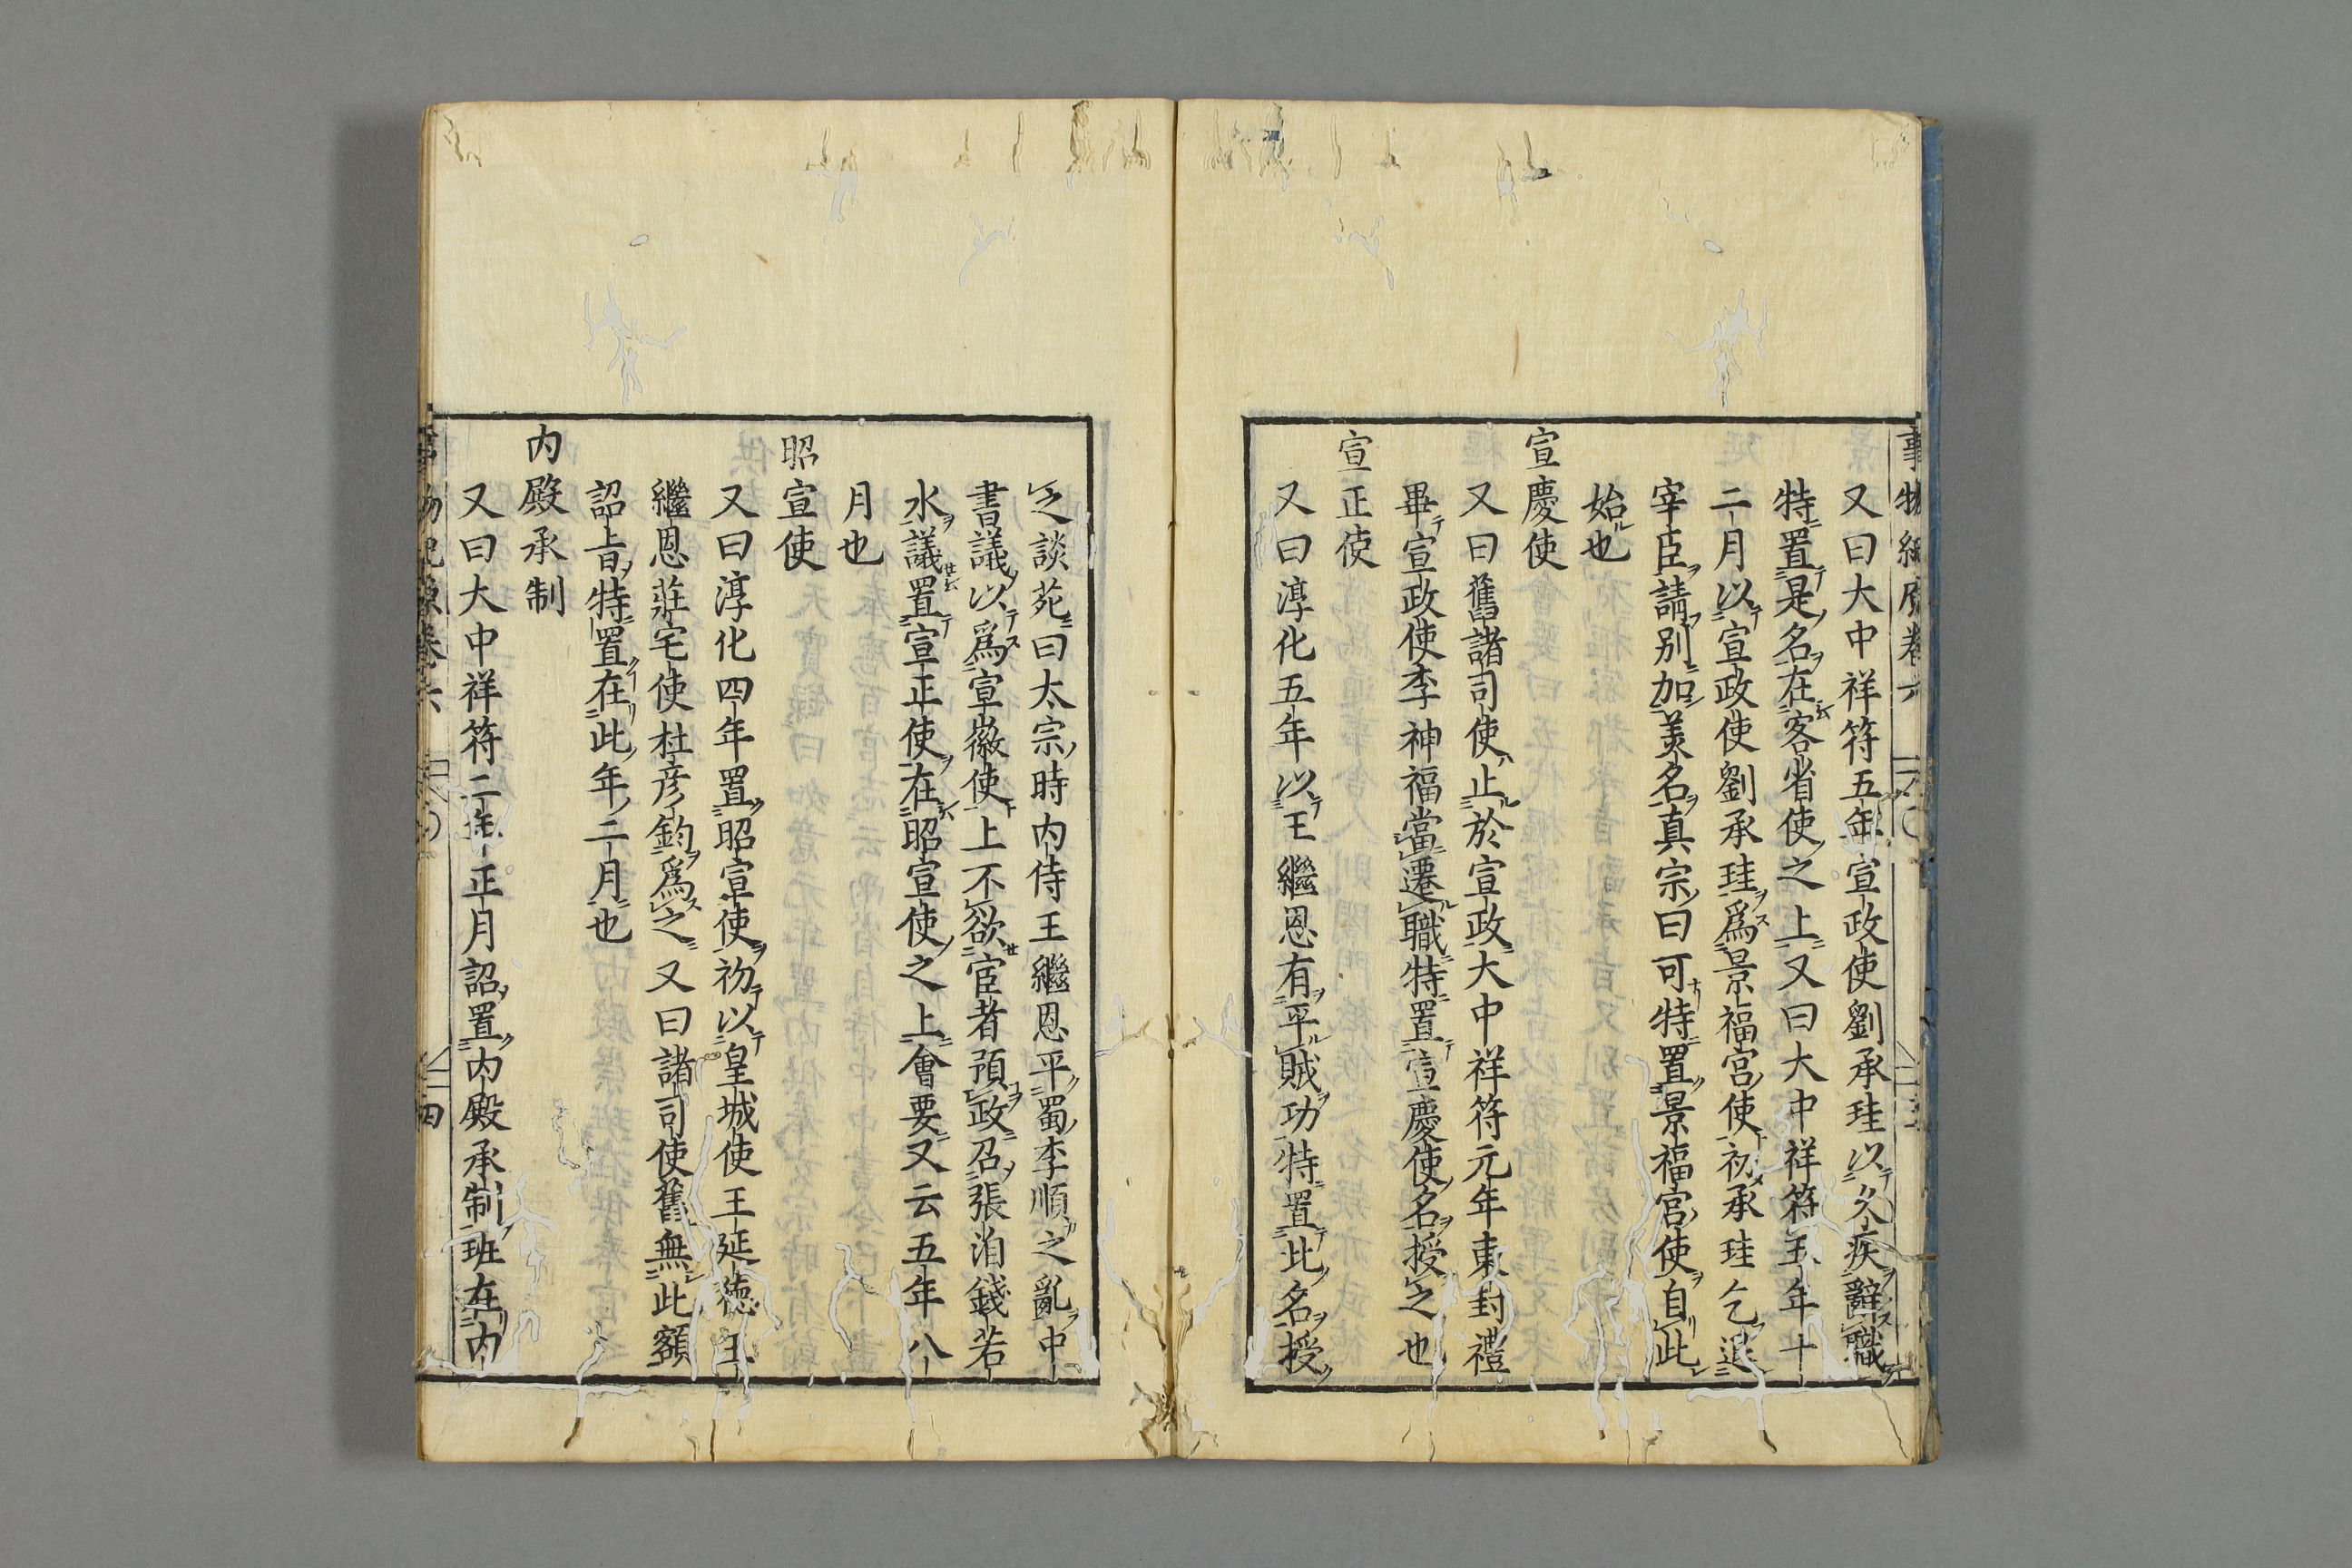 事物紀原卷六
又曰大中祥符五年宣政使劉承珪以久疾辭職
特置是名在客省使之上又曰大中祥符五年十
二月以宣政使劉承珪爲景福宮使初承珪乞退
宰臣請別加美名真宗曰可特置景福宮使自此
始也
宣慶使
又曰舊諸司使止於宣政大中祥符元年東封禮
畢宣政使李神福當遷職特置宣慶使名授之也
宣正使
又曰淳化五年以王繼恩有平賊功特置此名授
之談苑曰太宗時内侍王繼恩平蜀李順之亂中
書議以爲宣徽使上不欲宦者預政召張洎錢若
水議置宣正使在昭宣使之上會要又云五年八
月也
昭宣使
又曰淳化四年置昭宣使初以皇城使王延德王
繼恩莊宅使杜彦鈞爲之又曰諸司使舊無此額
詔旨特置在此年二月也
内殿承制
又曰大中祥符二年正月詔置内殿承制班在内
事物紀原卷六 四